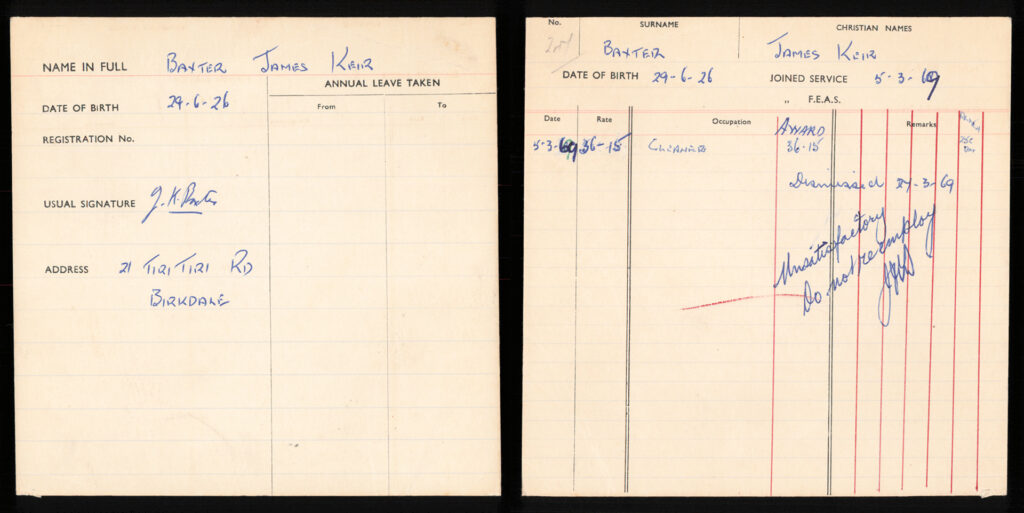 NAME IN FULL BAXTER JAMES KEIR
ANNUAL LEAVE TAKEN
DATE OF BIRTH 29-6-26
From To
REGISTRATION No.
USUAL SIGNATURE J. K. Baxter
ADDRESS 21 TIRI TIRI RD
BIRKDALE
No. SURNAME CHRISTIAN NAMES
BAXTER JAMES KEIR
DATE OF BIRTH 29-6-26 JOINED SERVICE 5-3-69
„ F.E.A.S.
Date Rate Occupation AWARD Remarks
5-3-69 36-15 CLEANER 36-15
Dismissed 27-3-69
Unsatisfactory
Do not reemploy